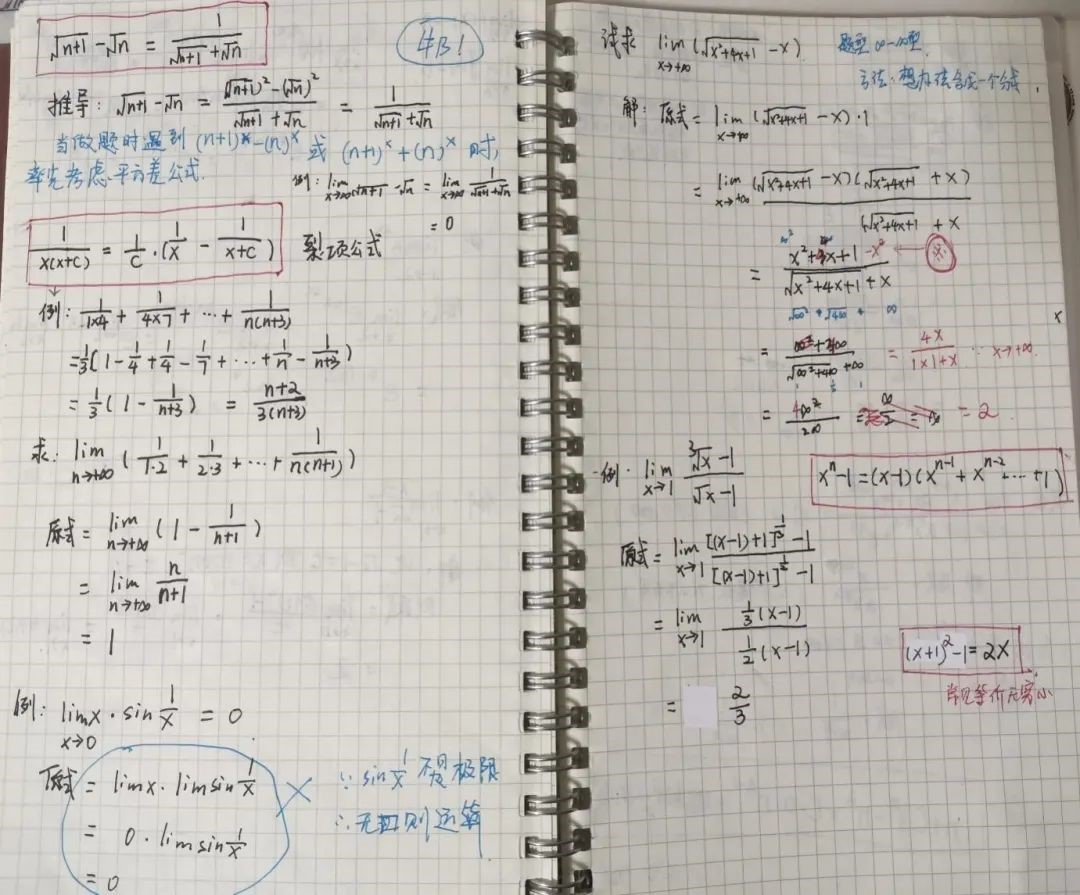 √n+1 - √n = 1/(√n+1 + √n)
推导: √n+1 - √n = ((√n+1)² - (√n)²)/(√n+1 + √n) = 1/(√n+1 + √n)
当做题时遇到 (n+1)^x - (n)^x 或 (n+1)^x + (n)^x 时,
率先考虑平方差公式.
例: lim x→∞ √n+1 - √n = lim x→∞ 1/(√n+1 + √n)
= 0
1/(x(x+c)) = 1/c · (1/x - 1/(x+c)) 裂项公式
例: 1/(1×4) + 1/(4×7) + ··· + 1/(n(n+3))
= 1/3 (1 - 1/4 + 1/4 - 1/7 + ··· + 1/n - 1/(n+3))
= 1/3 (1 - 1/(n+3)) = (n+2)/(3(n+3))
求: lim n→+∞ (1/(1·2) + 1/(2·3) + ··· + 1/(n(n+1)))
原式 = lim n→+∞ (1 - 1/(n+1))
= lim n→+∞ n/(n+1)
= 1
例: lim x→0 x · sin 1/x = 0
原式 = lim x · lim sin 1/x
= 0 · lim sin 1/x
= 0
×
∵ sin 1/x 不是极限
∴ 无四则运算
试求 lim x→+∞ (√x²+4x+1 - x)
题型 ∞-∞型
方法: 想办法合成一个分式
解: 原式 = lim x→+∞ (√x²+4x+1 - x) · 1
= lim x→+∞ (√x²+4x+1 - x)(√x²+4x+1 + x)/(√x²+4x+1 + x)
= (x²+4x+1 - x²)/(√x²+4x+1 + x)
= 4x/(1×1+x) ∵ x→+∞.
= 2
例. lim x→1 (³√x - 1)/(√x - 1)
xⁿ-1 = (x-1)(xⁿ⁻¹ + xⁿ⁻² ··· + 1)
原式 = lim x→1 ([(x-1)+1]^(1/3) - 1)/([(x-1)+1]^(1/2) - 1)
= lim x→1 (1/3 (x-1))/(1/2 (x-1))
= 2/3
(x+1)² - 1 = 2x
常见等价无穷小